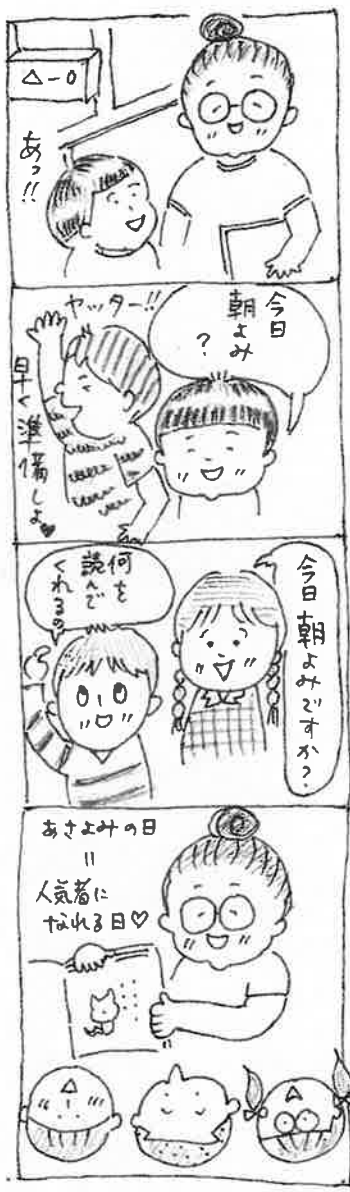 △-0
あっ!!
今日
朝よみ
?
ヤッター!!
早く準備しよ♥
今日朝よみですか?
何を
読んで
くれるの
あさよみの日
=
人気者に
なれる日♡